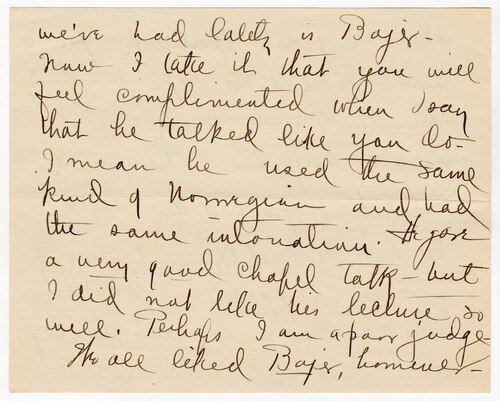 we've had lately is Bojer -
now I take it that you will
feel complimented when I say
that he talked like you do -
I mean he used the same
kind of Norwegian and had
the same intonation. He gave
a very good chapel talk - but
I did not like his lecture so
well. Perhaps I am a poor judge -
We all liked Bojer, however -